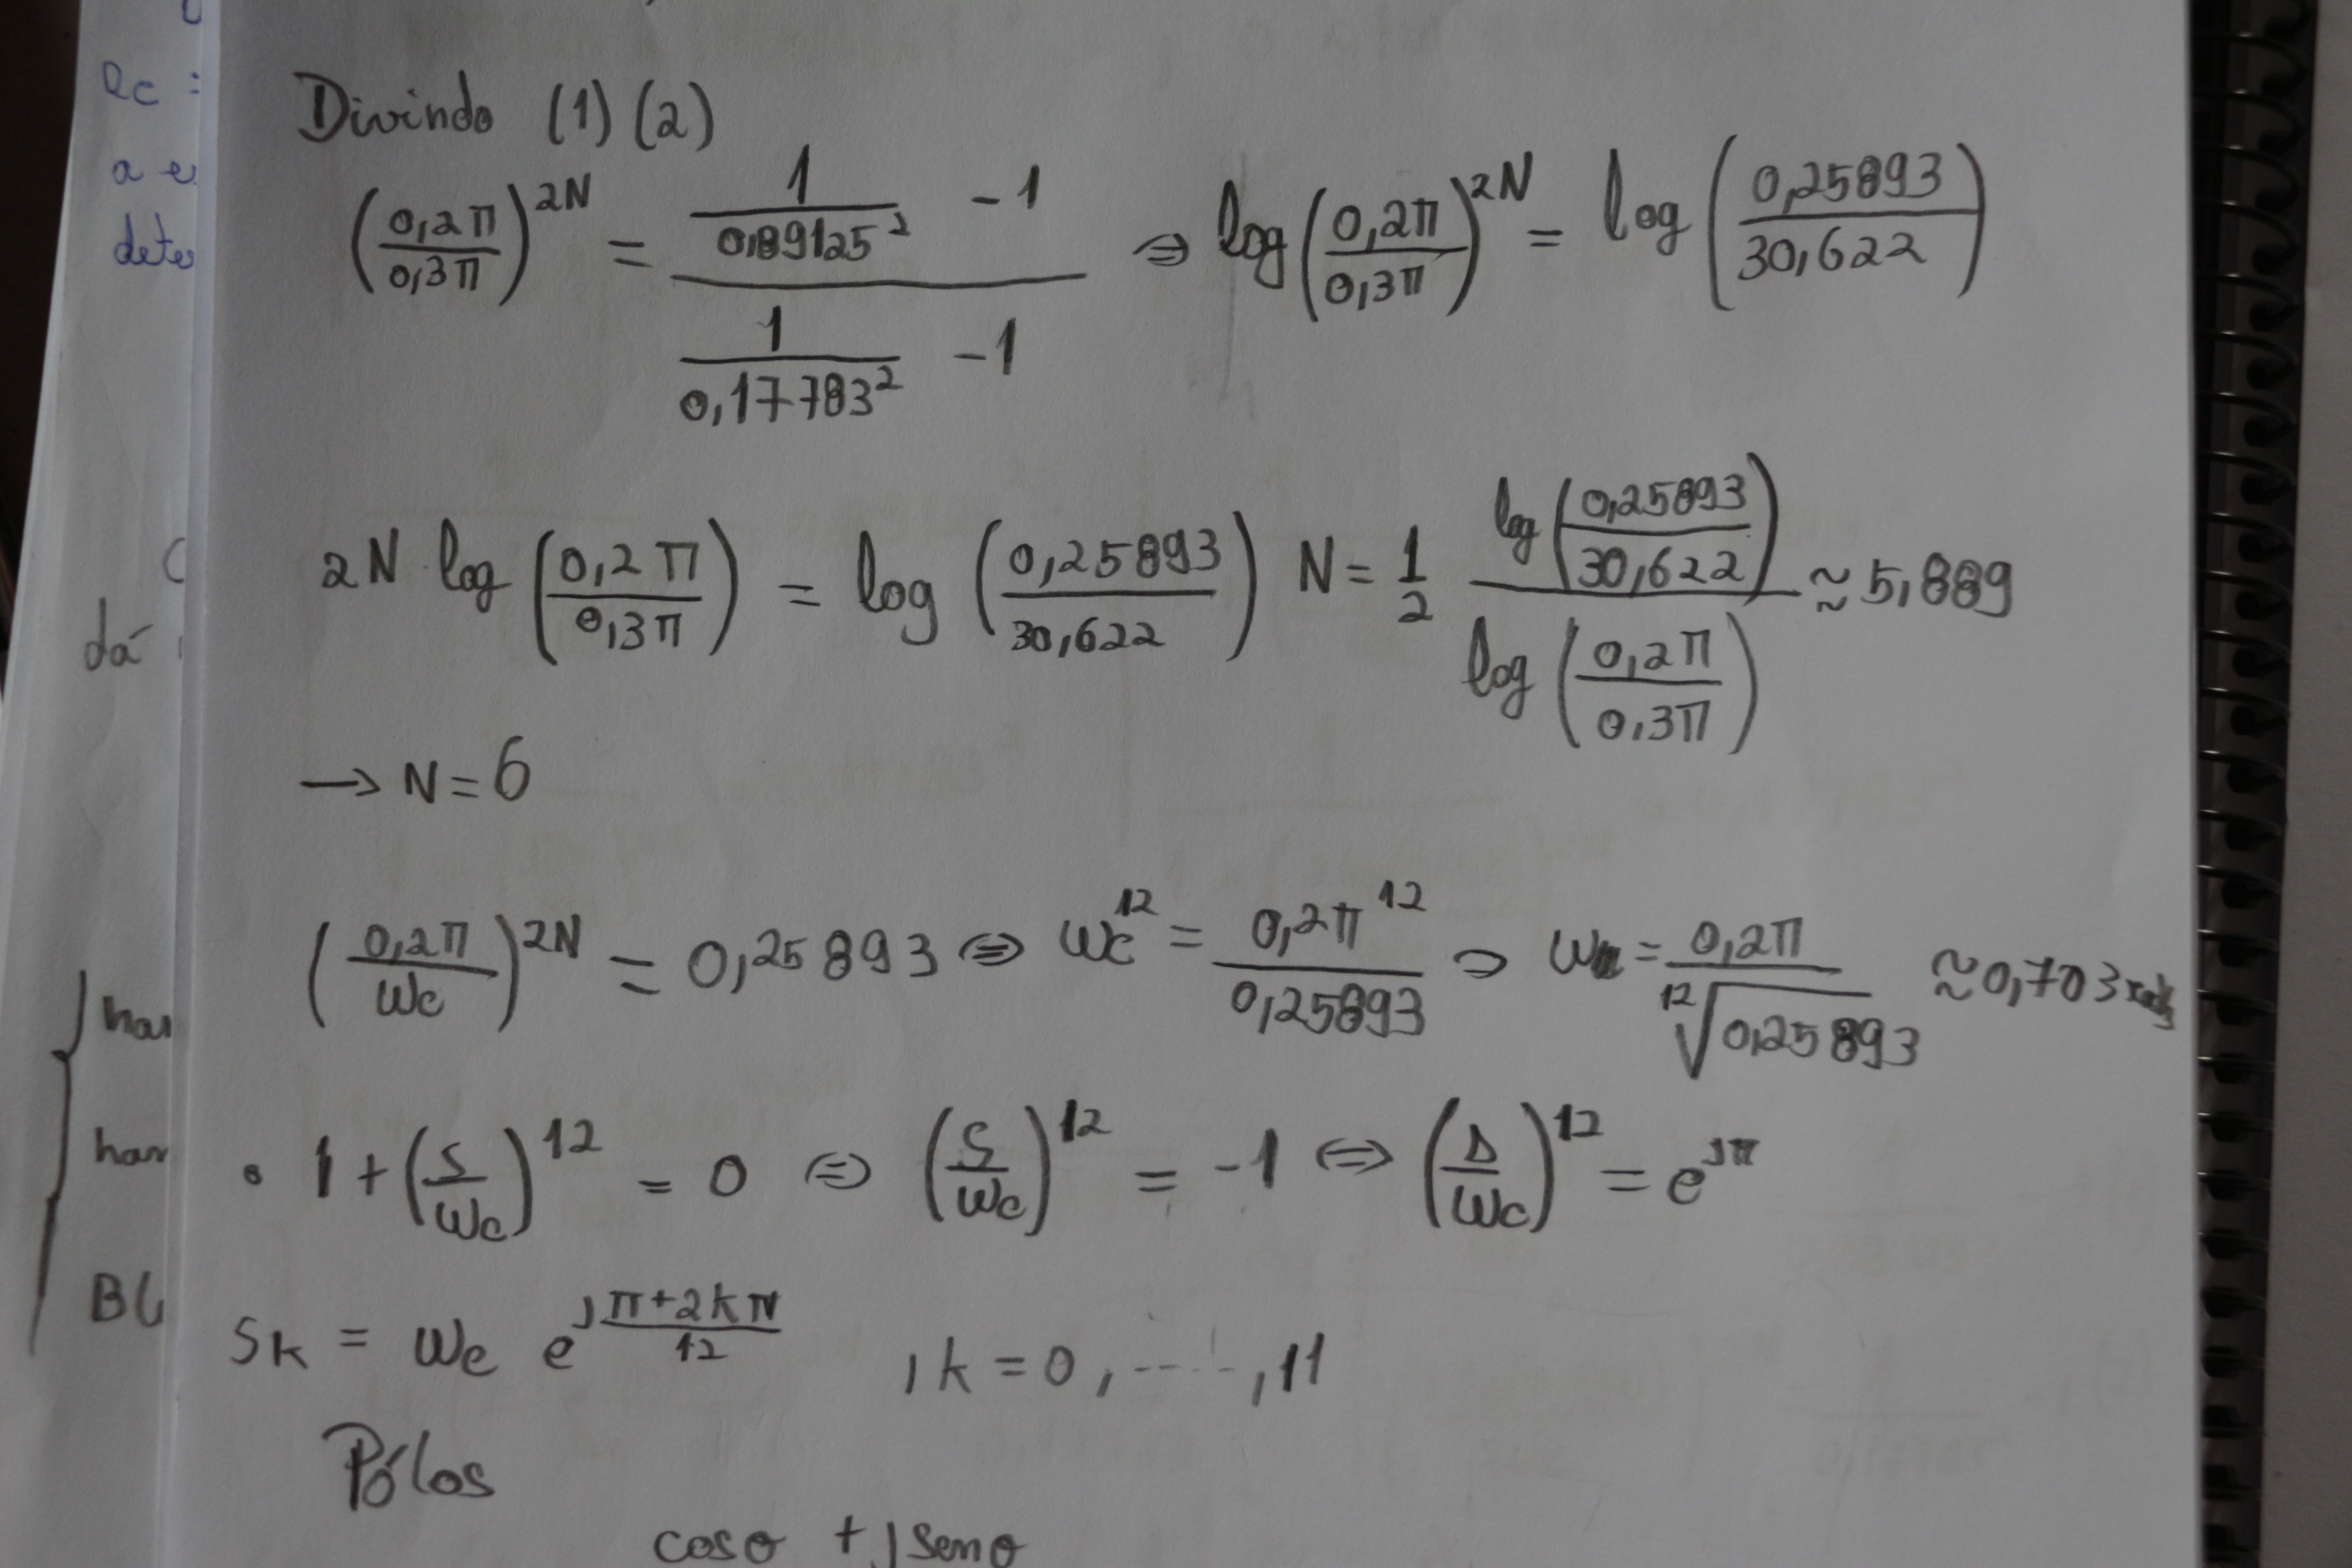 Divindo (1) (2)
(0,2π/0,3π)^2N = (1/0,89125² - 1)/(1/0,17783² - 1) ⇒ log(0,2π/0,3π)^2N = log(0,25893/30,622)
2N log(0,2π/0,3π) = log(0,25893/30,622) N = 1/2 log(0,25893/30,622)/log(0,2π/0,3π) ≈ 5,889
→ N = 6
(0,2π/wc)^2N = 0,25893 ⇔ wc^12 = 0,2π^12/0,25893 ⇒ = 0,2π/¹²√0,25893 ≈ 0,703
• 1 + (s/wc)^12 = 0 ⇔ (s/wc)^12 = -1 ⇔ (s/wc)^12 = e^jπ
Sk = wc e^j(π+2kπ)/12 , k = 0, ....., 11
Pólos
cosθ + jsenθ
Ωc =
a e
dete
dá
han
han